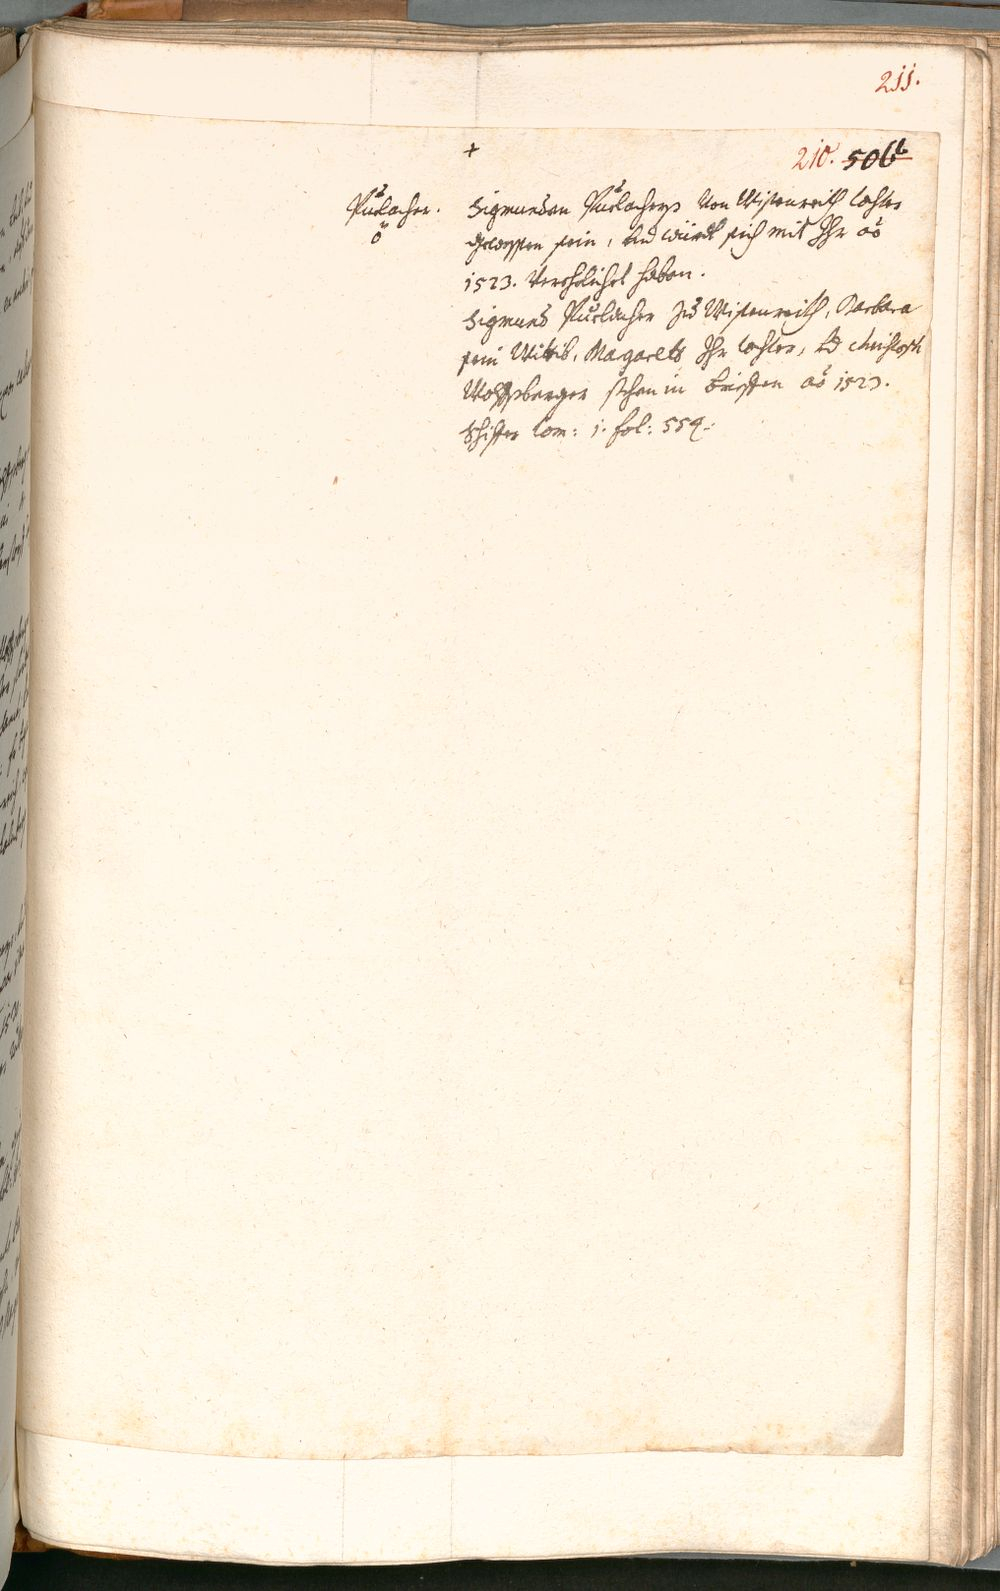 211.
+
210. 506b
Purlacher. Sigmunden Purlachers von Wisenreith tochter
ö gewessen sein, und würdt sich mit Ihr ao
1523. Verehelichet haben.
Sigmund Purlacher zu Wisenreith, Barbara
sein Wittib, Margareta Ihr tochter, Christoph
Wolfsberger stehen in brieffen ao 1523.
Schiffer tom: 1. fol: 559.